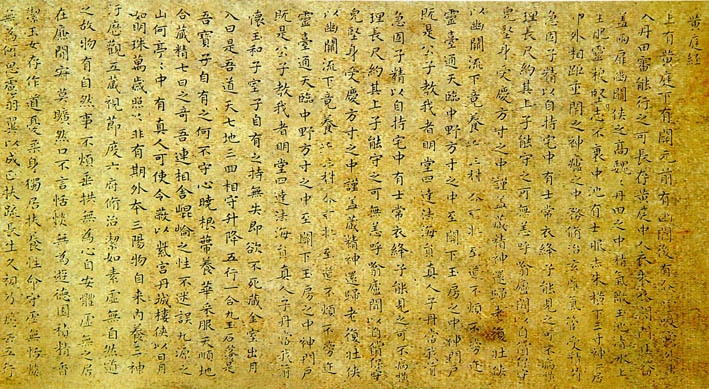 黄庭經
上有黄庭下有關元前有幽闕後有命
入丹田審能行之可長存黄庭中人衣朱衣關門壯籥
蓋兩扉幽闕俠之高巍巍丹田之中精氣微玉池清水上
生肥靈根堅志不衰中池有士服赤朱橫下三寸神所居
中外相距重閉之神廬之中務脩治玄廱氣管受精符
急固子精以自持宅中有士常衣絳子能見之可不病橫
理長尺約其上子能守之可無恙呼噏廬間以自償保守
皃堅身受慶方寸之中謹蓋藏精神還歸老復壯俠
以幽闕流下竟養 至道不煩不旁迕
靈臺通天臨中野方寸之中至關下玉房之中神門戶
既是公子教我者明堂四達法海員真人子丹當我前
急固子精以自持宅中有士常衣絳子能見之可不病橫
理長尺約其上子能守之可無恙呼噏廬間以自償保守
皃堅身受慶方寸之中謹蓋藏精神還歸老復壯俠
以幽闕流下竟養 至道不煩不旁迕
靈臺通天臨中野方寸之中至關下玉房之中神門戶
既是公子教我者明堂四達法海員真人子丹當我前
懷玉和子室子自有之持無失即欲不死藏金室出月
入日是吾道天七地三回相守升降五行一合九玉石落落是
吾寶子自有之何不守心曉根蔕養華采服天順地
合藏精七日之奇吾連相舍崐崘之性不迷誤九源之
山何亭亭中有真人可使令蔽以紫宮丹城樓俠以日月
如明珠萬歲照照非有期外本三陽物自來内養三神
行應觀五藏視節度六府脩治潔如素虛無自然道
之故物有自然事不煩垂拱無為心自安體虛無之居
在廉間寂莫曠然口不言恬惔無為遊德園積精香
潔玉女存作道憂柔身獨居扶養性命守虛無恬惔
無為何思慮羽翼以成正扶疏長生久視乃飛去五行